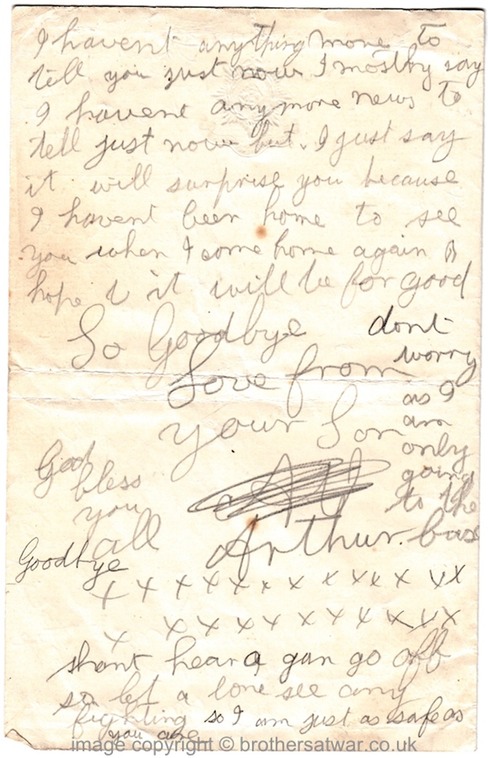 I havent anything more to
tell you just now I mostly say
I havent any more news to
tell just now but I just say
it will surprise you because
I havent been home to see
you when I come home again
hope it will be for good
So Goodbye
Love from
your Son
Arthur.
God
bless
you
all
Goodbye
dont
worry
as I
am
only
going
to the
base
x x x x x x x x x x x x x x
x x x x x x x x x x x x
x
shant hear a gun go off
so let a lone see any
fighting so I am just as safe as
you are
image copyright © brothersatwar.co.uk